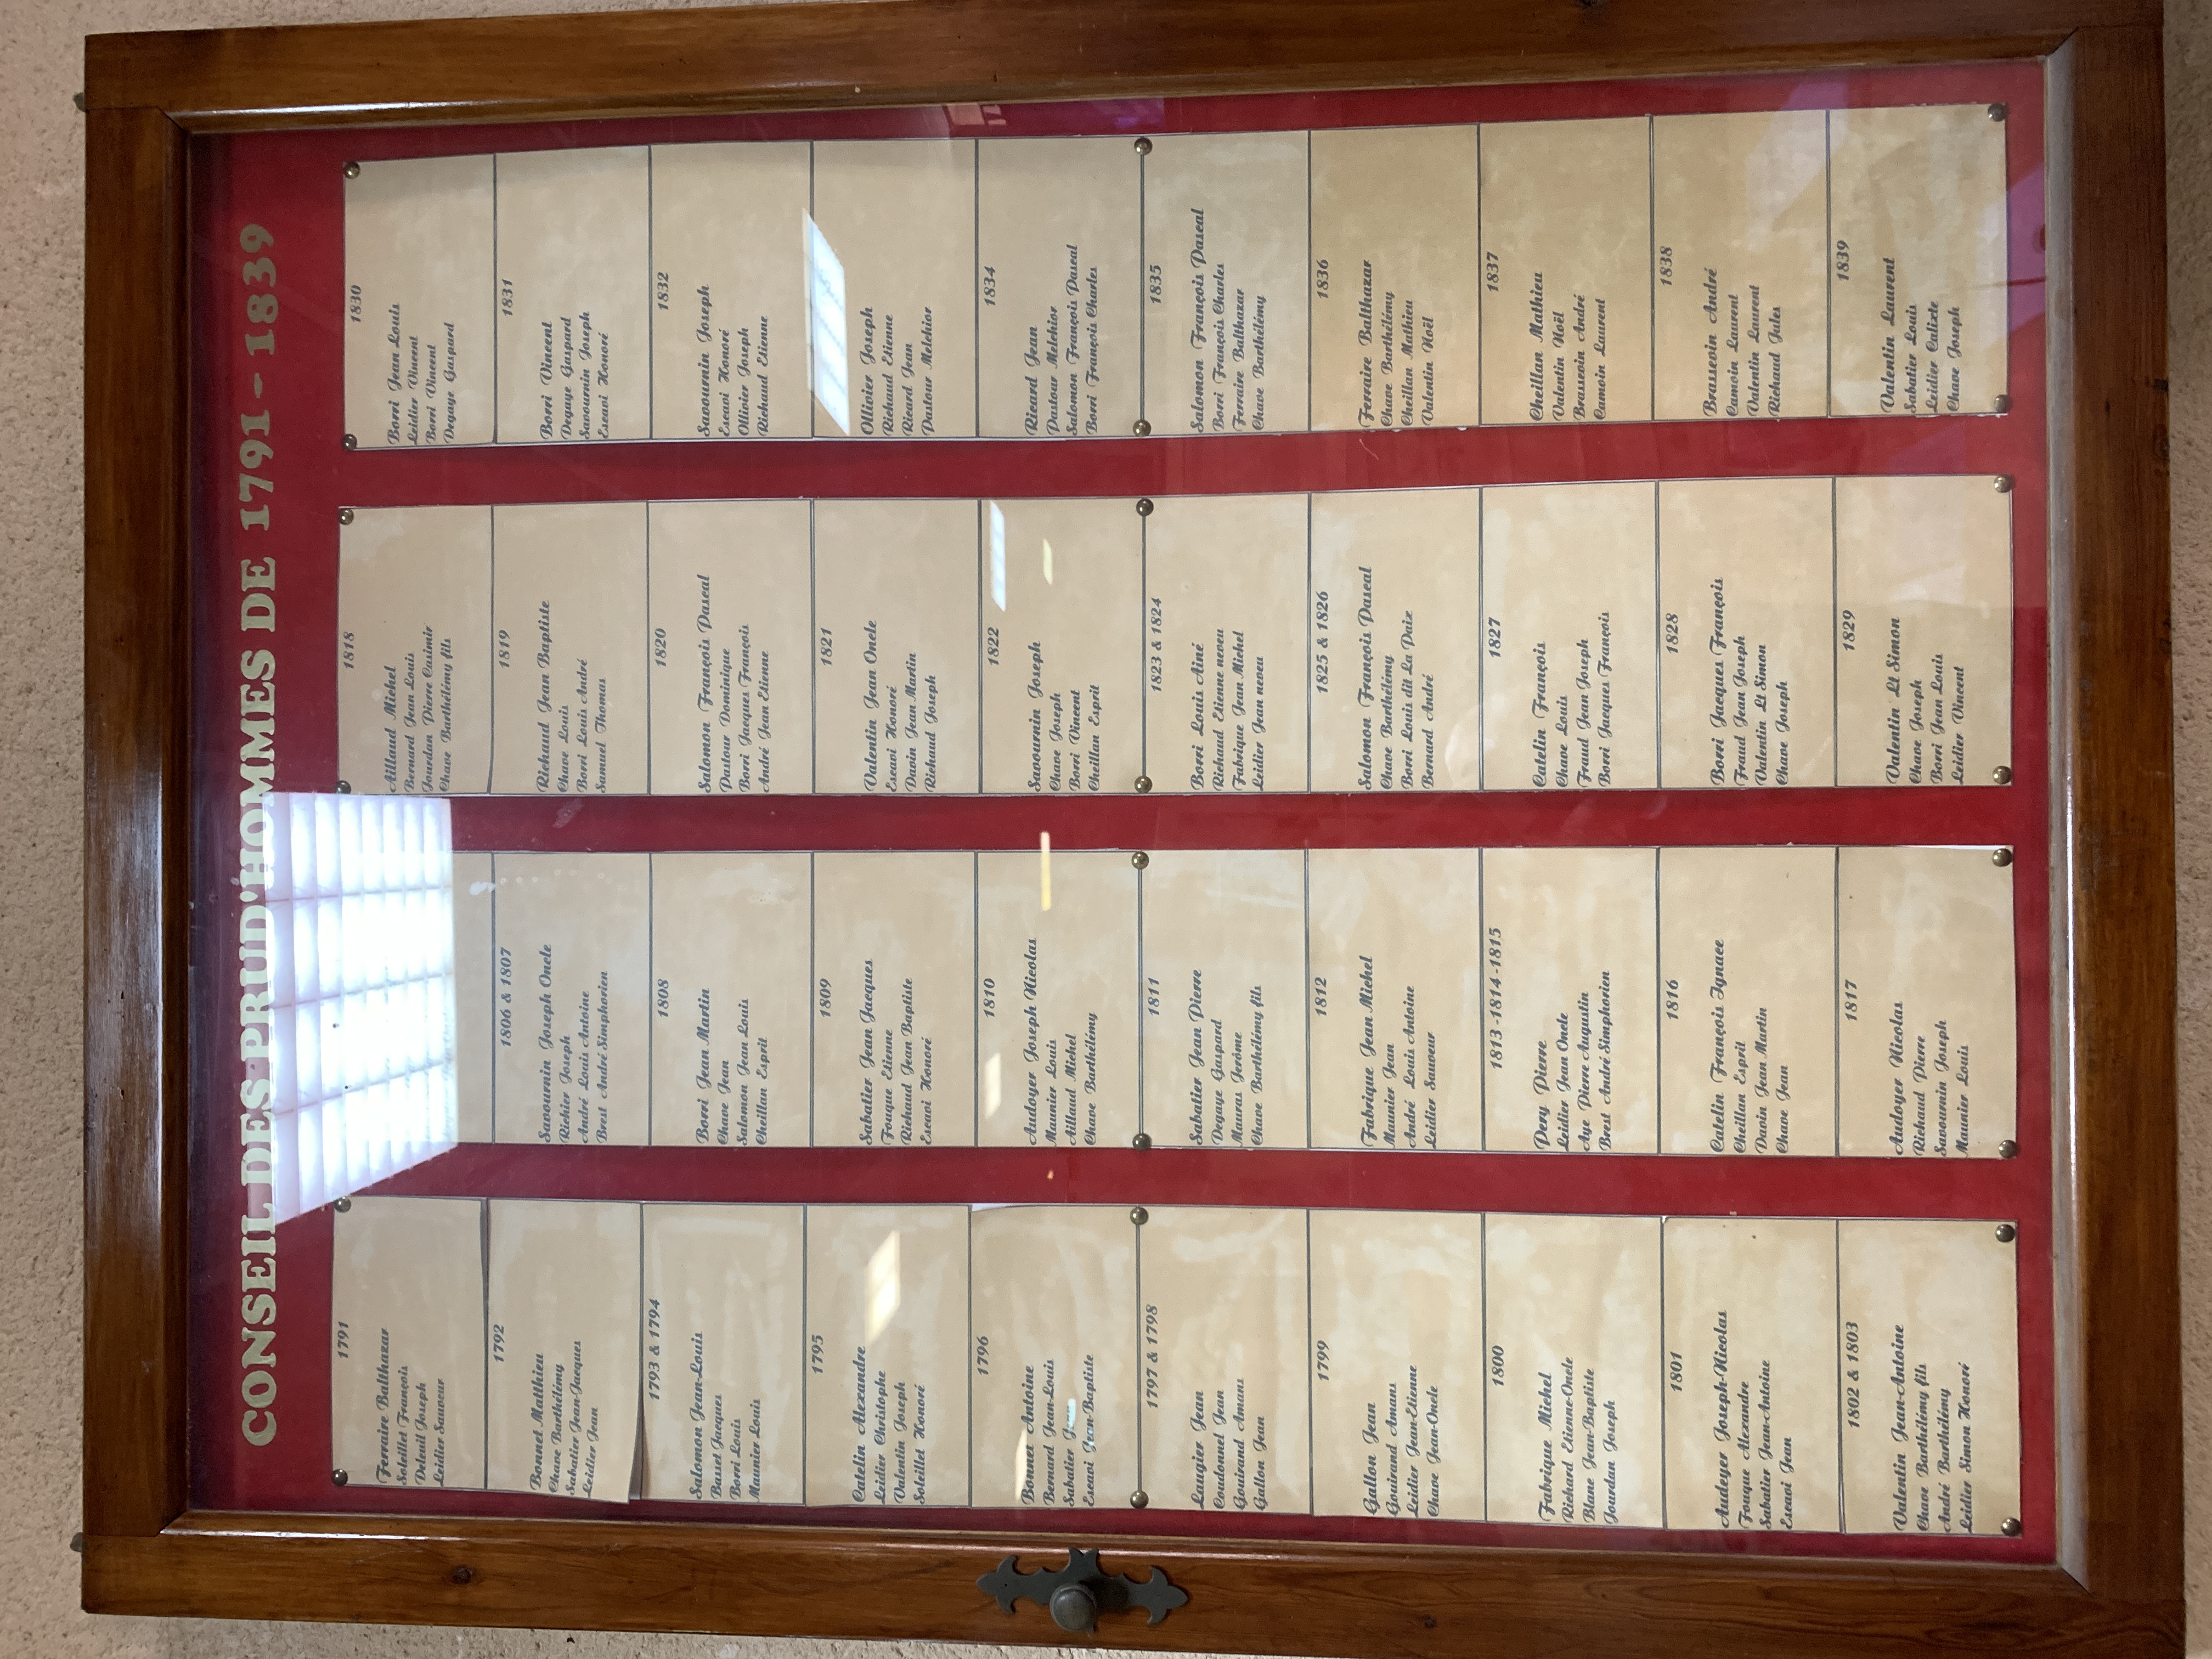 CONSEIL DES PRUD'HOMMES DE 1791 - 1839
1791
Ferraire Balthazar
Soleillet François
Deleuil Joseph
Leidier Sauveur
1792
Bonnet Matthieu
Chave Barthélémy
Sabatier Jean-Jacques
Leidier Jean
1793 & 1794
Salomon Jean-Louis
Basset Jacques
Borri Louis
Maunier Louis
1795
Catelin Alexandre
Leidier Christophe
Valentin Joseph
Soleillet Honoré
1796
Bonnet Antoine
Bernard Jean-Louis
Sabatier Jean
Escavi Jean-Baptiste
1797 & 1798
Laugier Jean
Coudonel Jean
Gouirand Amans
Gallon Jean
1799
Gallon Jean
Gouirand Amans
Leidier Jean-Etienne
Chave Jean-Oncle
1800
Fabrique Michel
Richard Etienne-Oncle
Blanc Jean-Baptiste
Jourdan Joseph
1801
Audeyer Joseph-Nicolas
Fouque Alexandre
Sabatier Jean-Antoine
Escavi Jean
1802 & 1803
Valentin Jean-Antoine
Chave Barthélémy fils
André Barthélémy
Leidier Simon Honoré
1806 & 1807
Savournin Joseph Oncle
Richier Joseph
André Louis Antoine
Brest André Simphorien
1808
Borri Jean Martin
Chave Jean
Salomon Jean Louis
Cheillan Esprit
1809
Sabatier Jean Jacques
Fouque Etienne
Richaud Jean Baptiste
Escavi Honoré
1810
Audoyer Joseph Nicolas
Maunier Louis
Aillaud Michel
Chave Barthélémy
1811
Sabatier Jean Pierre
Degaye Gaspard
Mauras Jerôme
Chave Barthélémy fils
1812
Fabrique Jean Michel
Maunier Jean
André Louis Antoine
Leidier Sauveur
1813 -1814 -1815
Pery Pierre
Leidier Jean Oncle
Aye Pierre Augustin
Brest André Simphorien
1816
Catelin François Ignace
Cheillan Esprit
Davin Jean Martin
Chave Jean
1817
Audoyer Nicolas
Richaud Pierre
Savournin Joseph
Maunier Louis
1818
Aillaud Michel
Bernard Jean Louis
Jourdan Pierre Casimir
Chave Barthélémy fils
1819
Richaud Jean Baptiste
Chave Louis
Borri Louis André
Samuel Thomas
1820
Salomon François Pascal
Pastour Dominique
Borri Jacques François
André Jean Etienne
1821
Valentin Jean Oncle
Escavi Honoré
Davin Jean Martin
Richaud Joseph
1822
Savournin Joseph
Chave Joseph
Borri Vincent
Cheillan Esprit
1823 & 1824
Borri Louis Ainé
Richaud Etienne neveu
Fabrique Jean Michel
Leidier Jean neveu
1825 & 1826
Salomon François Pascal
Chave Barthélémy
Borri Louis dit La Paix
Bernard André
1827
Catelin François
Chave Louis
Fraud Jean Joseph
Borri Jacques François
1828
Borri Jacques François
Fraud Jean Joseph
Valentin Lt Simon
Chave Joseph
1829
Valentin Lt Simon
Chave Joseph
Borri Jean Louis
Leidier Vincent
1830
Borri Jean Louis
Leidier Vincent
Borri Vincent
Degaye Gaspard
1831
Borri Vincent
Degaye Gaspard
Savournin Joseph
Escavi Honoré
1832
Savournin Joseph
Escavi Honoré
Ollivier Joseph
Richaud Etienne
Ollivier Joseph
Richaud Etienne
Ricard Jean
Pastour Melchior
1834
Ricard Jean
Pastour Melchior
Salomon François Pascal
Borri François Charles
1835
Salomon François Pascal
Borri François Charles
Ferraire Balthazar
Chave Barthélémy
1836
Ferraire Balthazar
Chave Barthélémy
Cheillan Mathieu
Valentin Noël
1837
Cheillan Mathieu
Valentin Noël
Brasseoin André
Camoin Laurent
1838
Brasseoin André
Camoin Laurent
Valentin Laurent
Richaud Jules
1839
Valentin Laurent
Sabatier Louis
Leidier Calixte
Chave Joseph